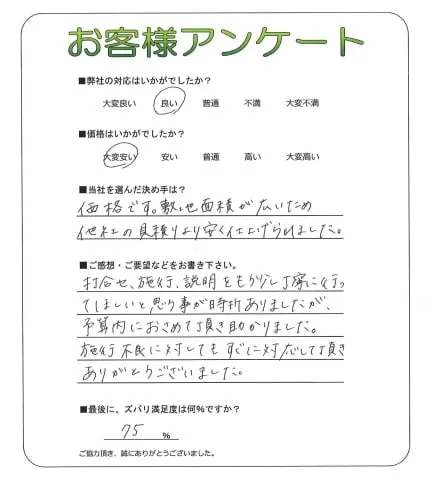 お客様アンケート
■弊社の対応はいかがでしたか？
大変良い 良い 普通 不満 大変不満
■価格はいかがでしたか？
大変安い 安い 普通 高い 大変高い
■当社を選んだ決め手は？
価格です。敷地面積が広いため
他社の見積りより安く仕上げられました。
■ご感想・ご要望などをお書き下さい。
打合せ、施行、説明をもう少し丁寧に行っ
てほしいと思う事が時折ありましたが、
予算内におさめて頂き助かりました。
施行不良に対してもすぐに対応して頂き
ありがとうございました。
■最後に、ズバリ満足度は何％ですか？
75 ％
ご協力頂き、誠にありがとうございました。